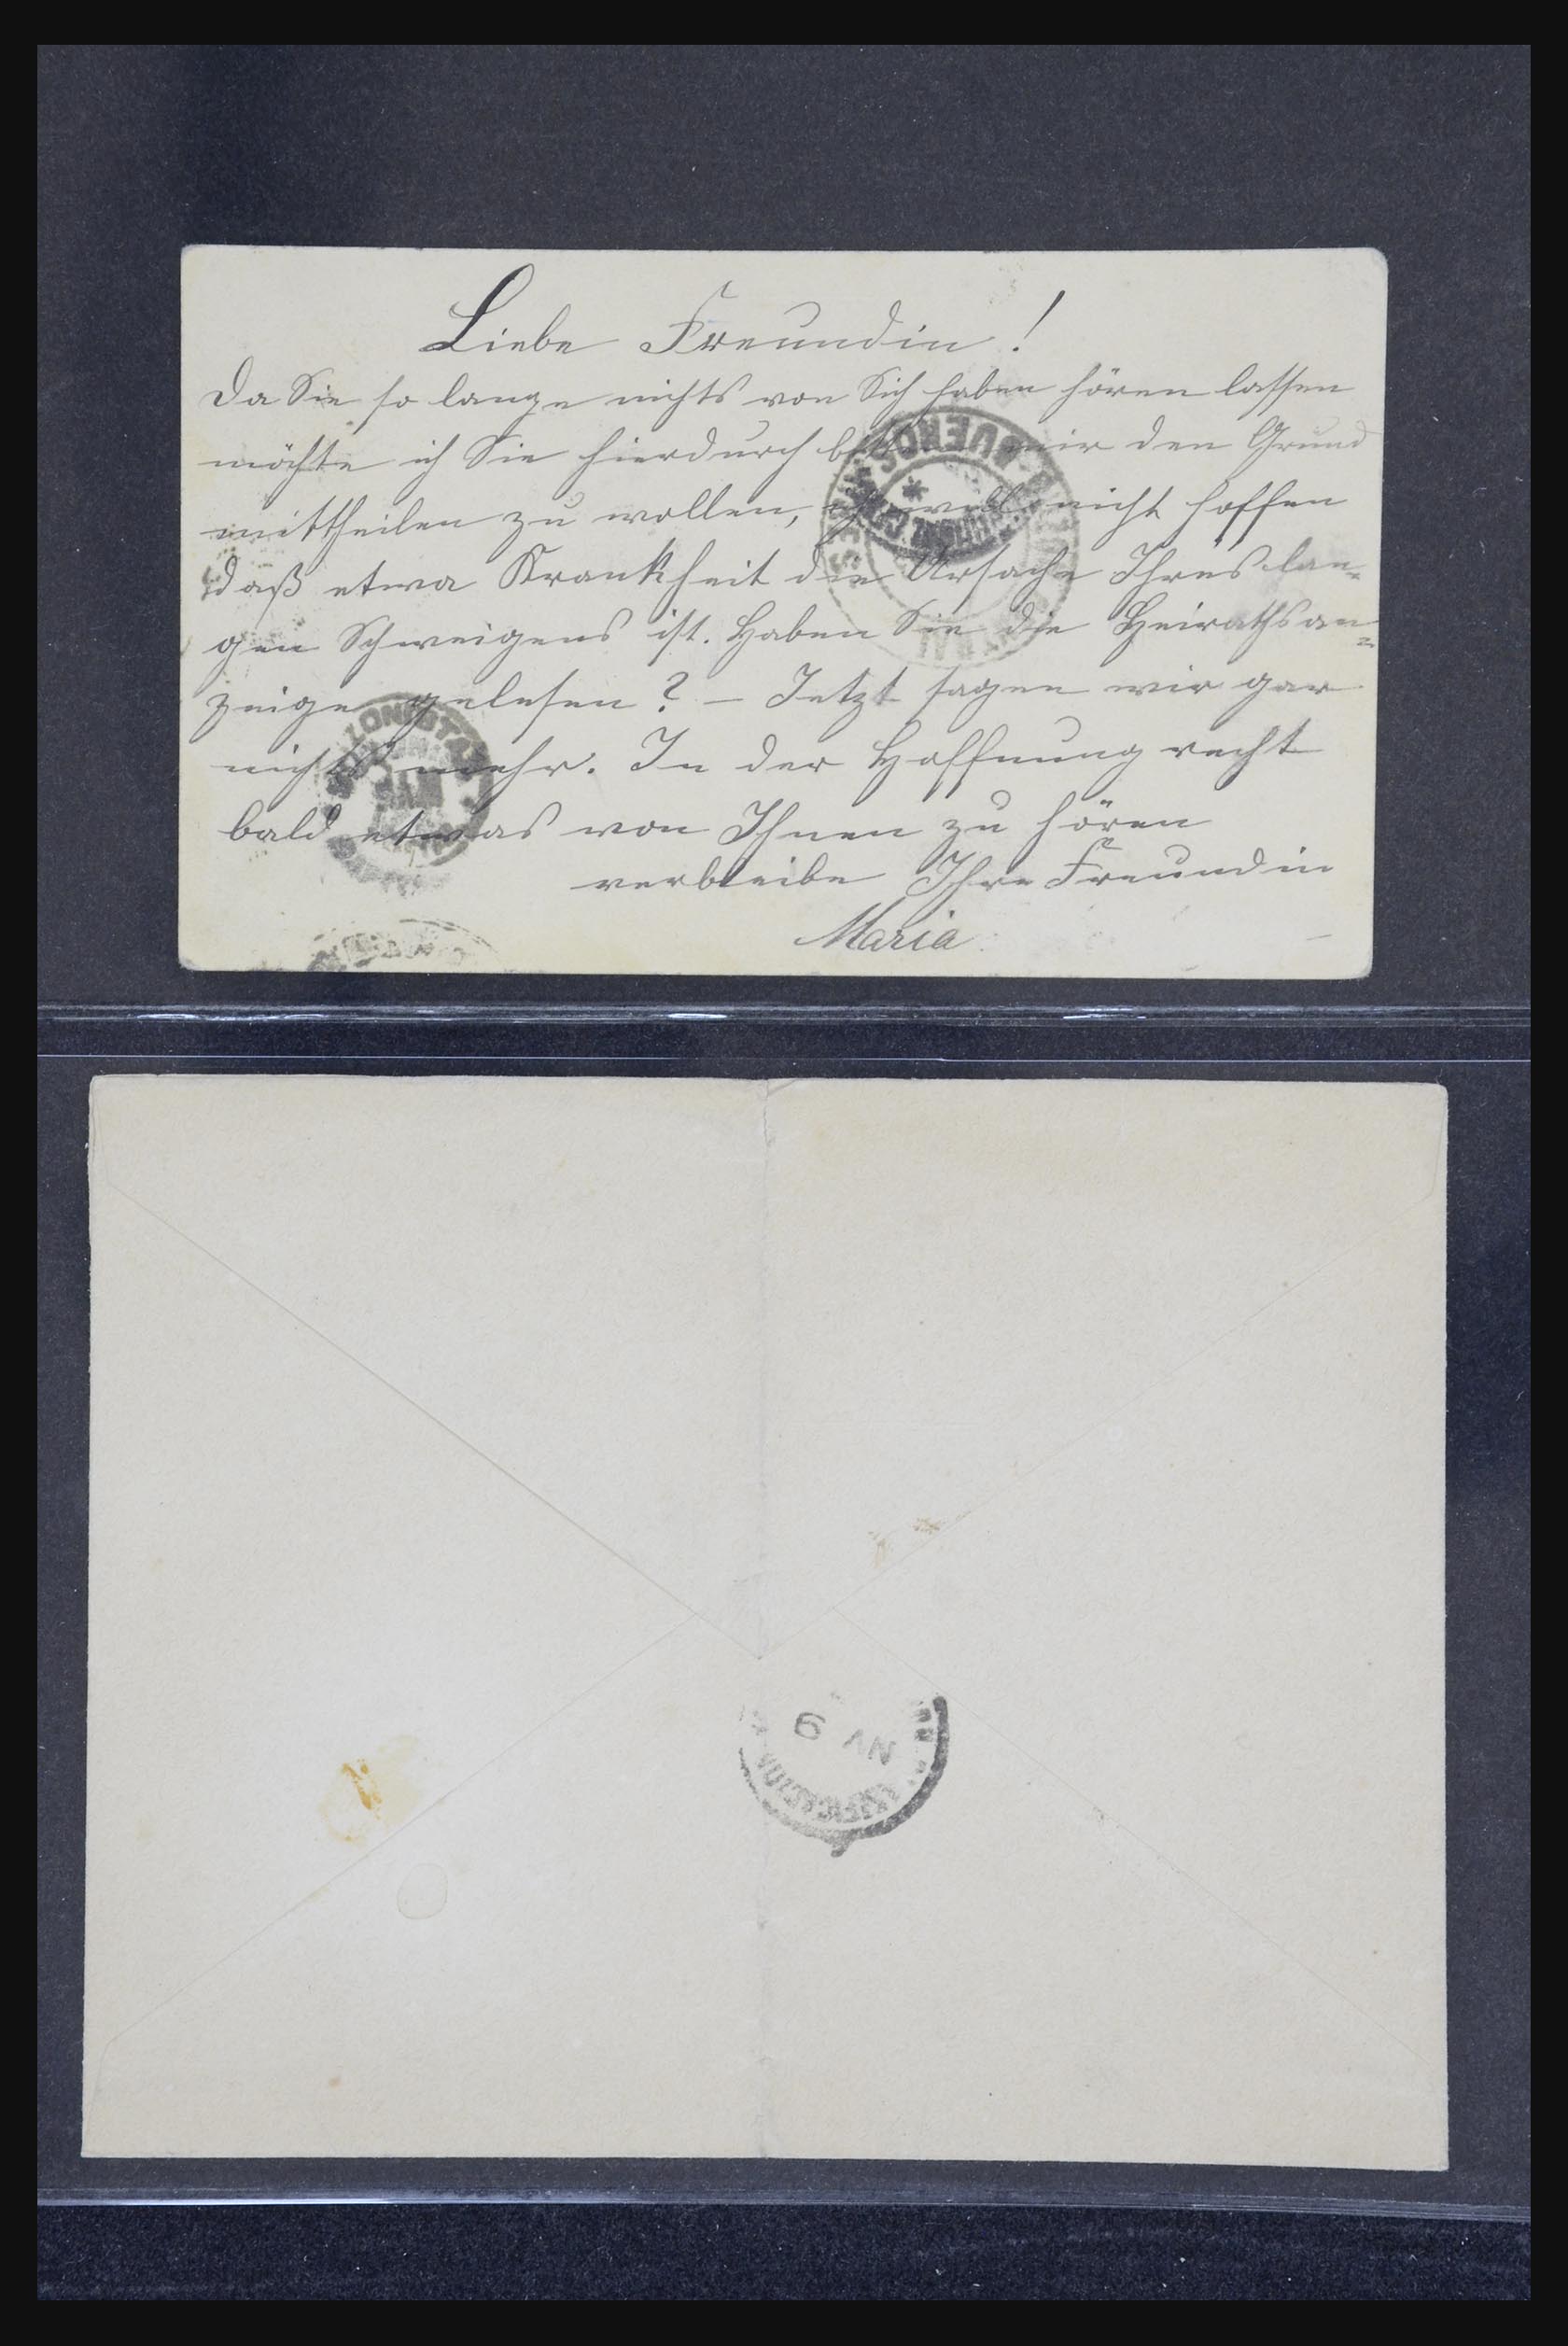 Liebe Freundin!
Da Sie so lange nichts von Sich haben hören lassen
möchte ich Sie hierdurch mir den Grund
mittheilen zu wollen, ich will nicht hoffen
daß etwa Krankheit die Ursache Ihres lan-
gen Schweigens ist. Haben Sie die Heirathsan=
zeige gelesen? – Jetzt sagen wir gar
nichts mehr. In der Hoffnung recht
bald etwas von Ihnen zu hören
verbleibe Ihre Freundin
Maria
BUENOS
6 NV